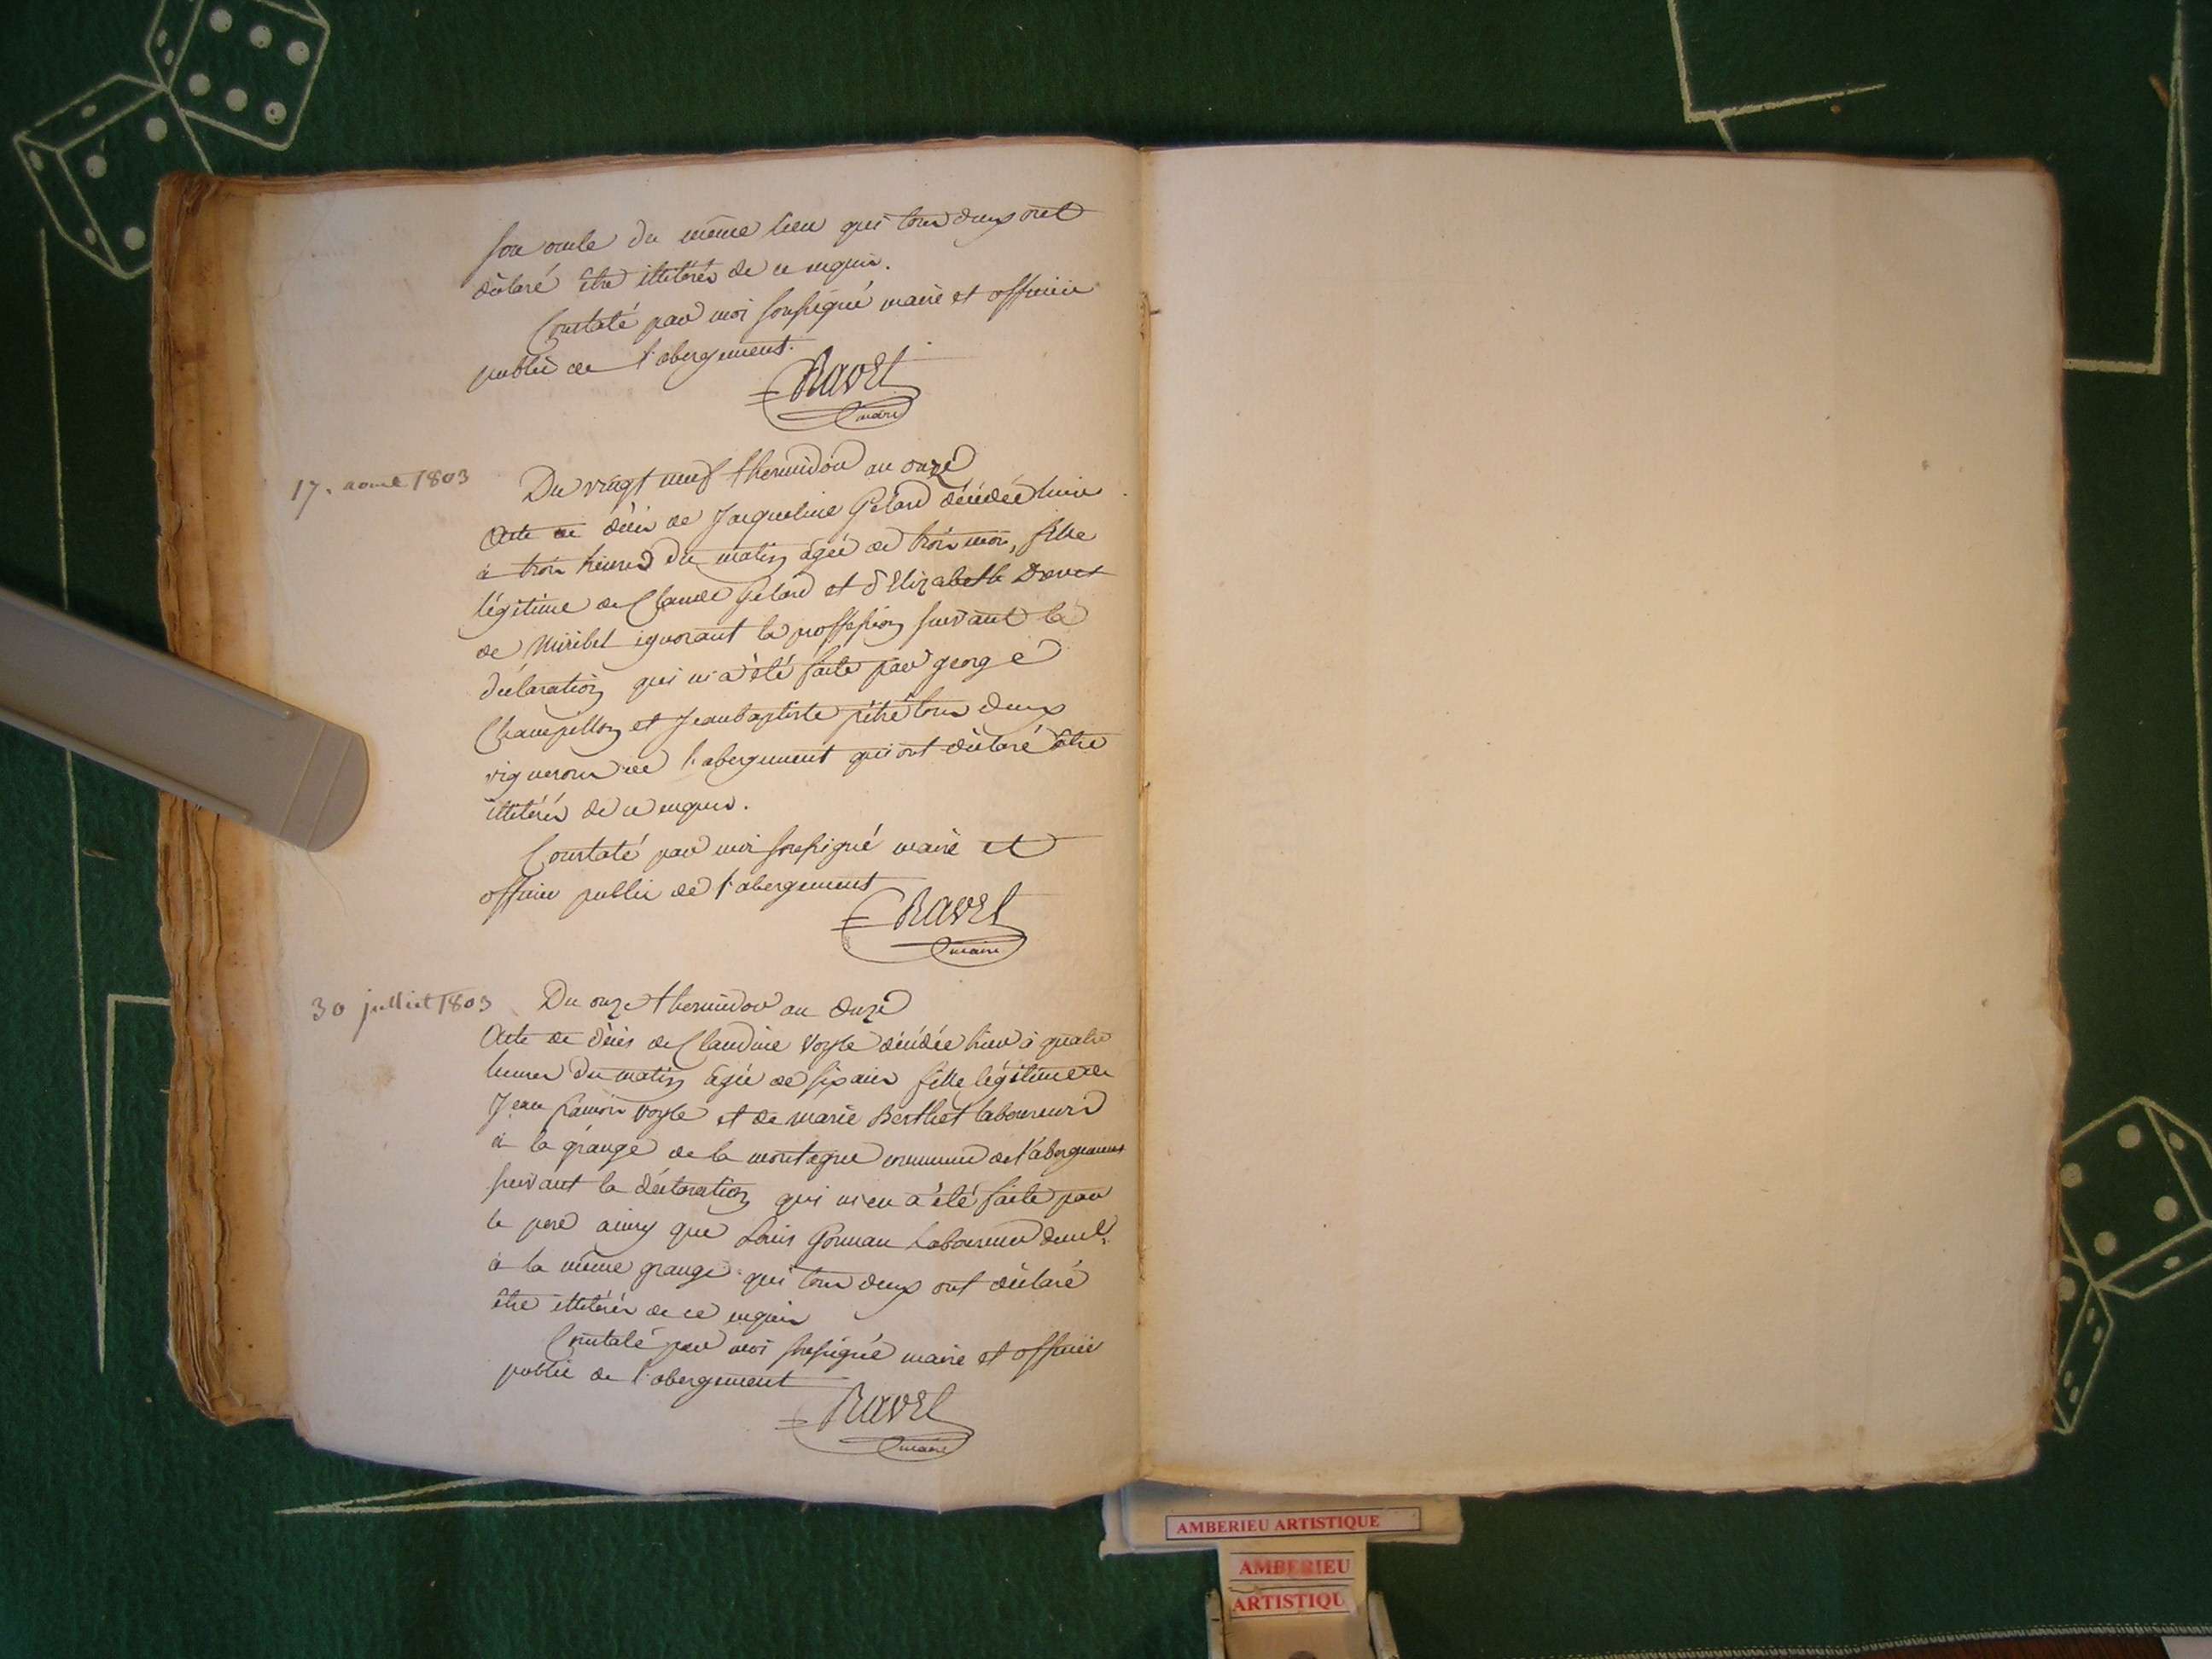 son oncle du même lieu qui tous deux ont
déclaré être illitérés de ce requis.
Constaté par moi soussigné maire et officier
public de l'abergement.
Ravet
maire
17. aout 1803
Du vingt neuf thermidor an onze
Acte de décès de Jacqueline Gelard décédée hier
à trois heures du matin âgée de trois mois, fille
légitime de Claude Gelard et d'Elizabeth
de Miribel ignorant la proffession suivant la
déclaration qui m'a été faite par george
Champillon et Jean baptiste pitre tous deux
vignerons de l'abergement qui ont déclaré être
illitérés de ce requis.
Constaté par moi soussigné maire et
officier public de l'abergement
Ravet
maire
30 julliet 1803
Du onze thermidor an onze
Acte de décès de Claudine Voyle décédée hier à quatre
heures du matin âgée de six ans fille légitime de
Jean Voyle et de marie Berthet laboureurs
à la grange de la montagne commune de l'abergement
suivant la déclaration qui m'en a été faite par
le pere ainsy que Louis Laboureur demt.
à la même grange qui tous deux ont déclaré
être illitérés de ce requis
Constaté par moi soussigné maire et officier
public de l'abergement
Ravet
maire
AMBERIEU ARTISTIQUE
AMBERIEU
ARTISTIQU